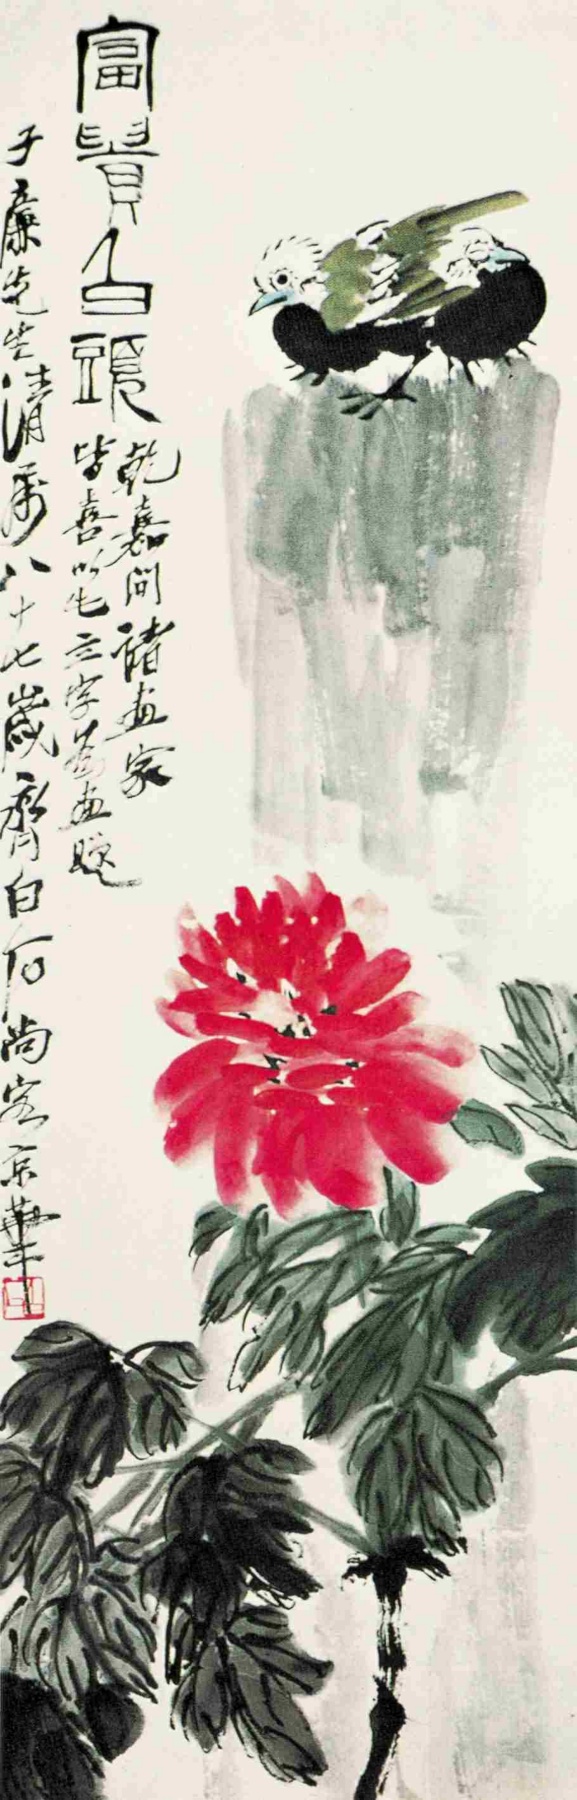 富貴白頭
乾嘉间諸畫家
皆喜以此字為畫題
子廉先生清屬八十七歲齊白石尚客京華